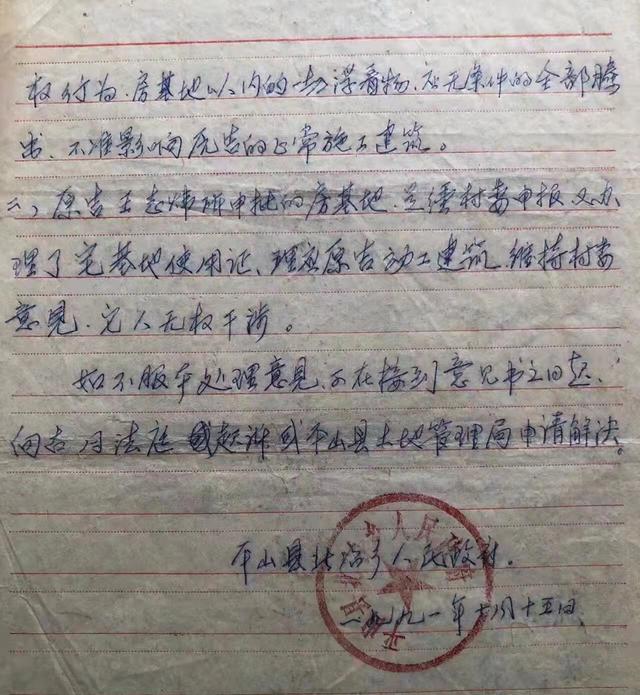 权行为、房基地以内的一切附着物，应无条件的全部腾
出、不准影响原告的正常施工建筑。
二、原告王志伟所申批的房基地、是经村委申报、又办
理了宅基地使用证、理应原告动工建筑、维持村委
意见、它人无权干涉。
如不服本处理意见、可在接到意见书之日起、
向古月法庭起诉或平山县土地管理局申请解决。
平山县北冶乡人民政府。
一九九一年十月十五日